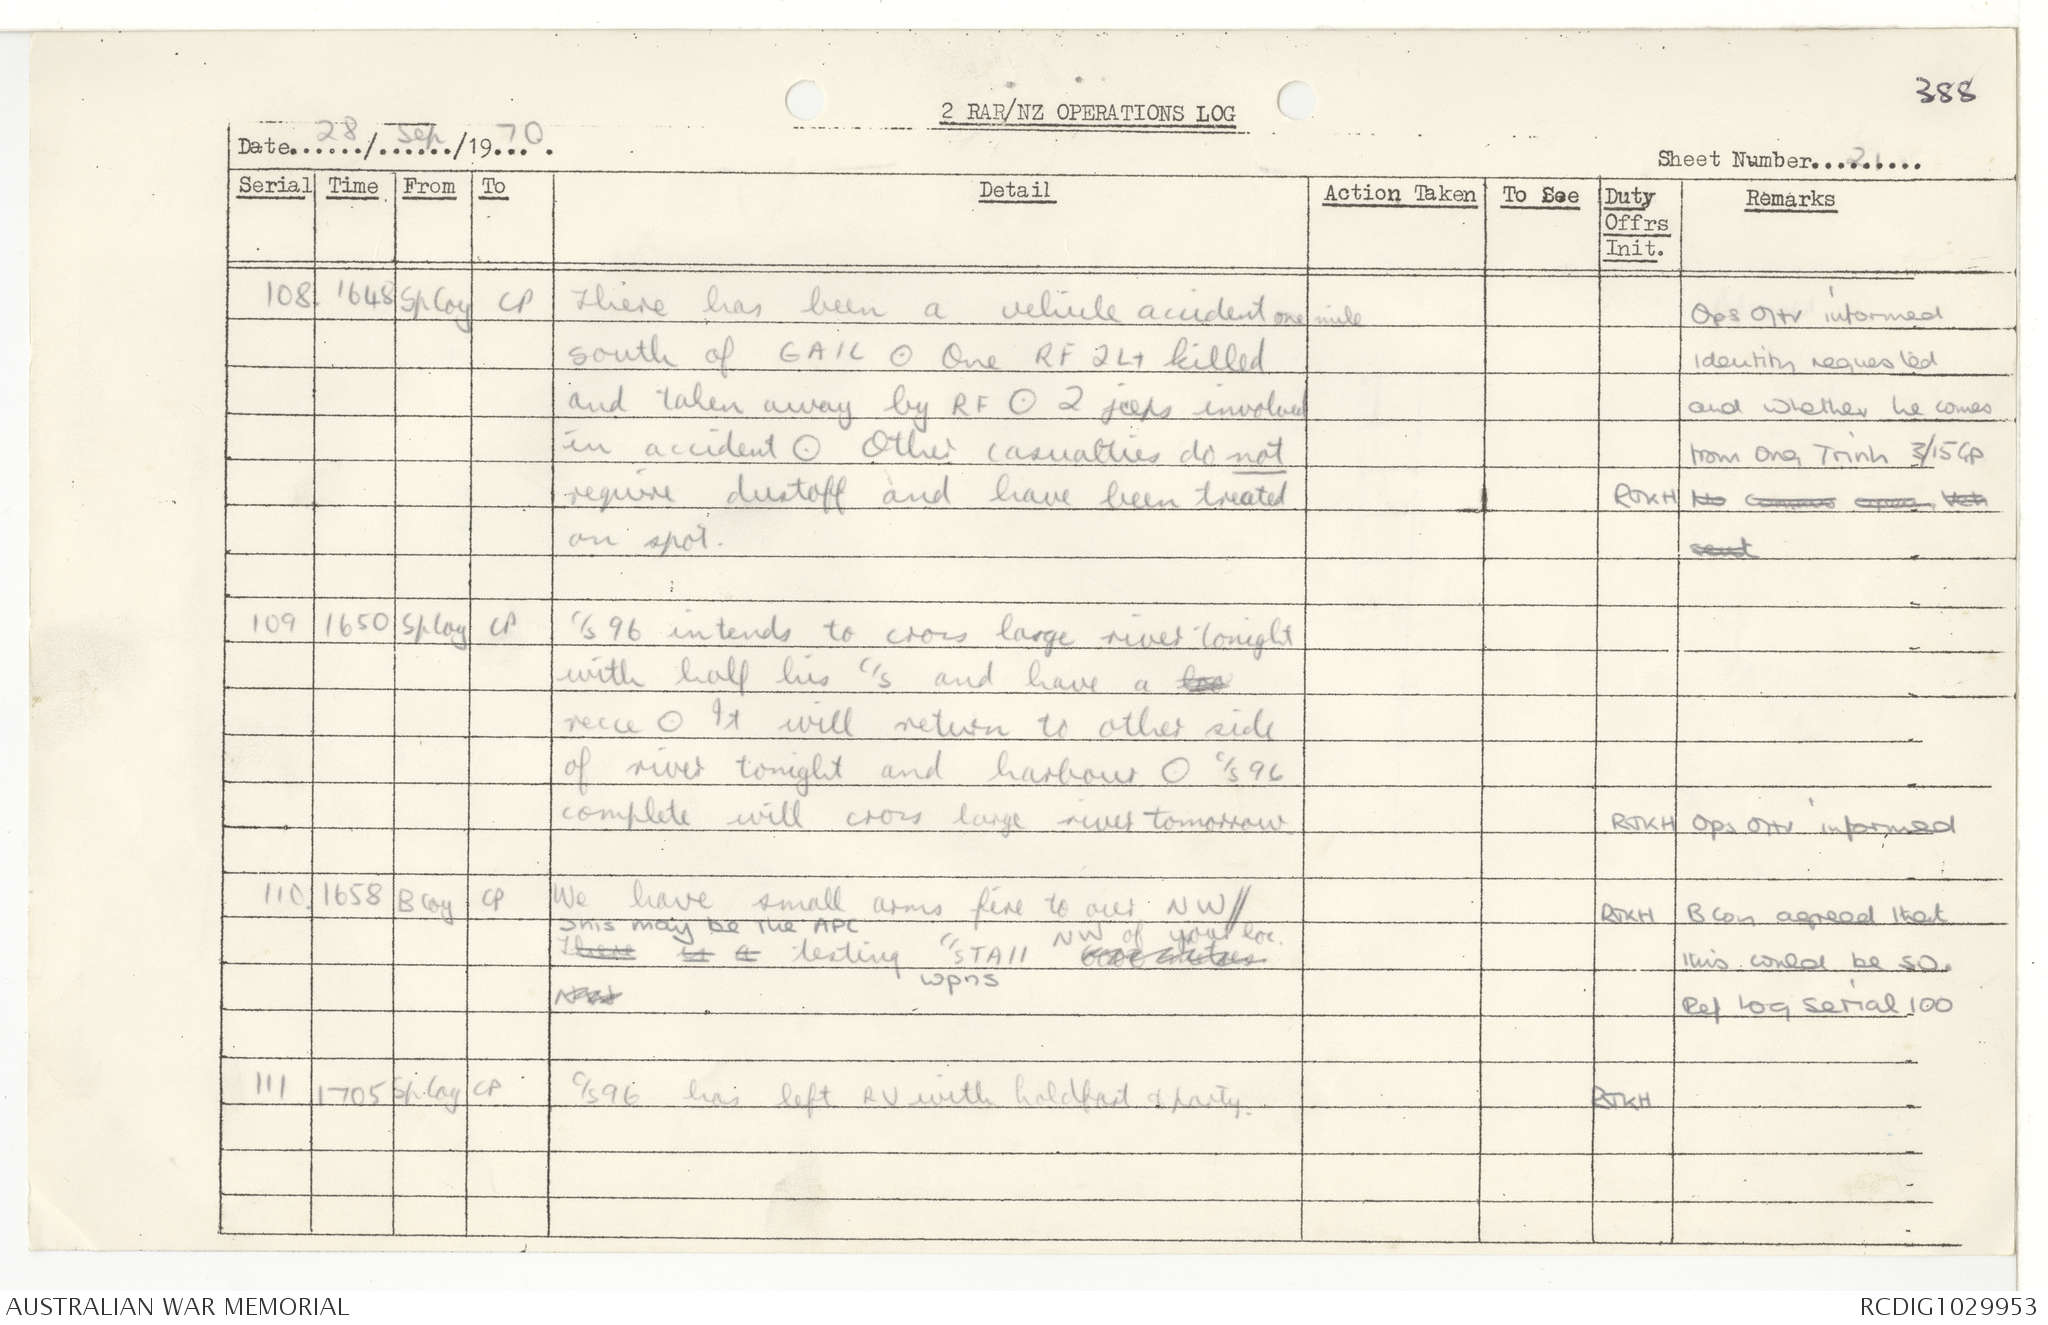 388
2 RAR/NZ OPERATIONS LOG
Date 28 / Sep / 1970.
Sheet Number 21
Serial Time From To Detail Action Taken To See Duty Offrs Init. Remarks
108. 1648 SpCoy CP There has been a vehicle accident one mile Ops Offr informed
south of GAIL ⊙ One RF 2Lt killed Identity requested
and taken away by RF ⊙ 2 jeeps involved and whether he comes
in accident ⊙ Other casualties do not from Ong Trinh 3/15 Gp
require dustoff and have been treated RJKH No
on spot.
109 1650 SpCoy CP C/S 96 intends to cross large river tonight
with half his C/S and have a
recce ⊙ It will return to other side
of river tonight and harbour ⊙ C/S 96
complete will cross large river tomorrow RJKH Ops Offr informed
110. 1658 B Coy CP We have small arms fire to our NW// RJKH B Coy agreed that
This may be the APC NW of your loc.
There is a testing C/S TA11 this could be so.
wpns
Ref Log Serial 100
111 1705 SpCoy CP C/S 96 has left RV with holdfast & party. RJKH
AUSTRALIAN WAR MEMORIAL
RCDIG1029953